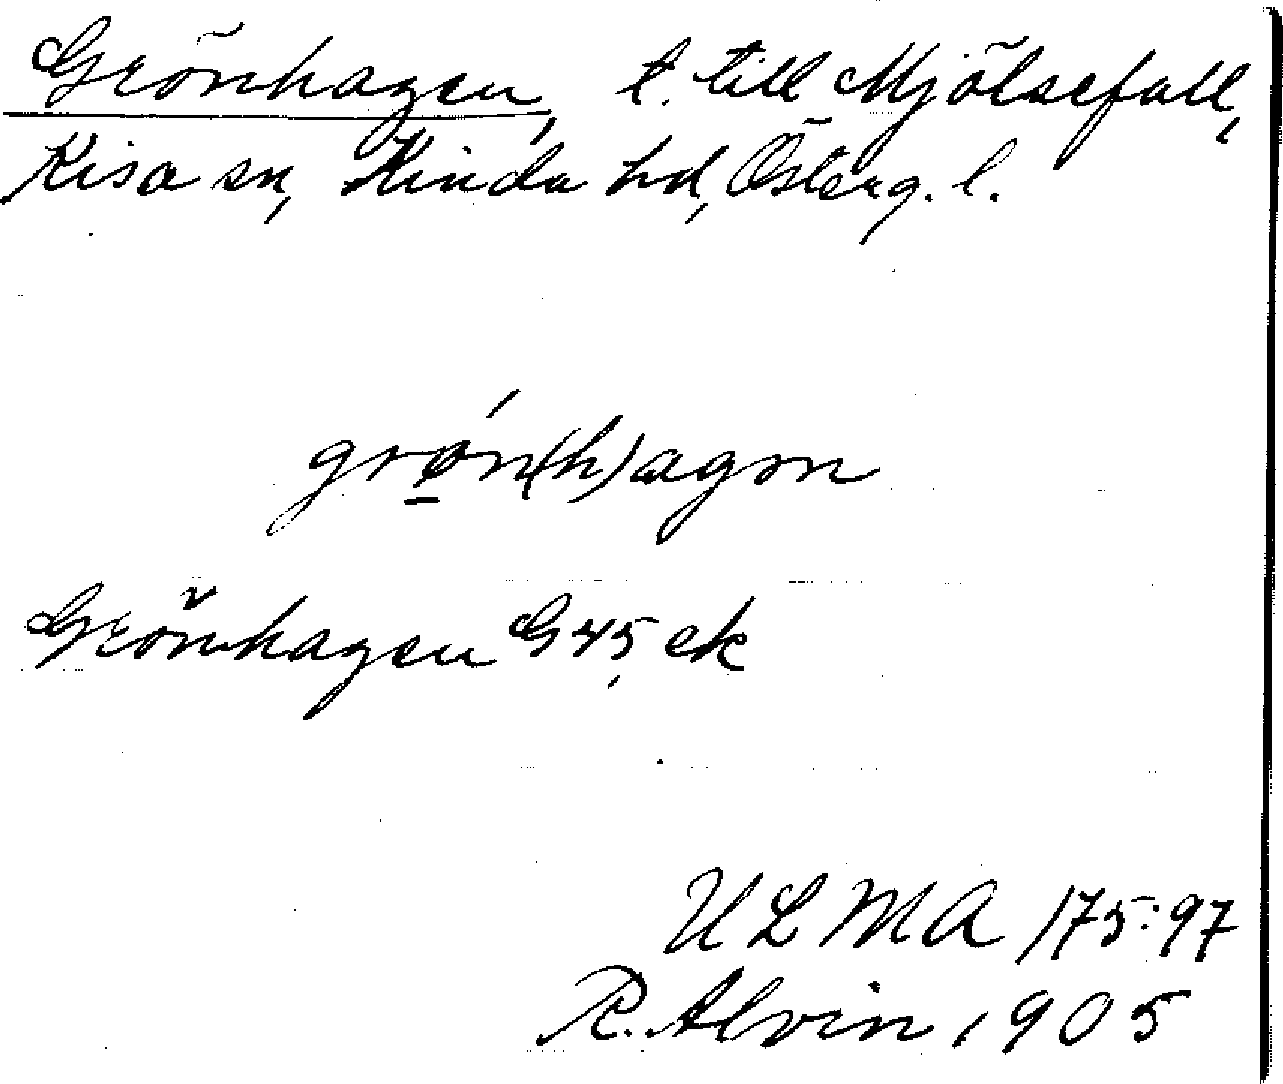 Grönhagen, t. till Mjölsefall,
Kisa sn, Kinda hd, Österg. l.
grǿ̱n(h)agon
Grönhagen G 45, ek
ULMA 175:97
R. Alvin 1905